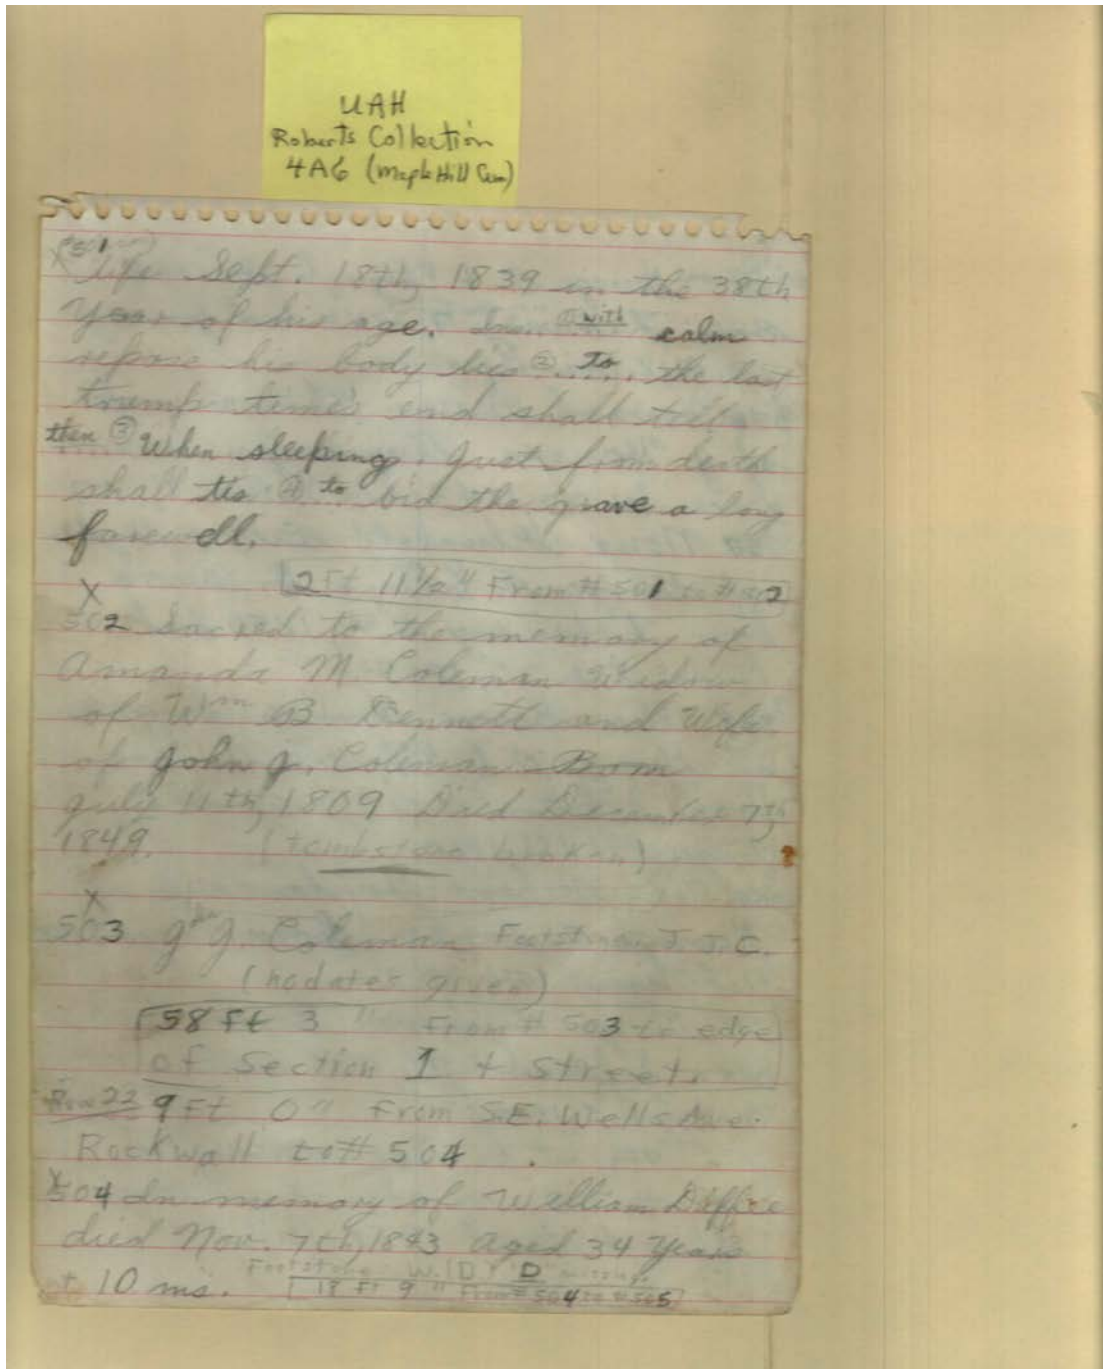 UAH
Roberts Collection
4A6 (Maple Hill Cem)
501
life Sept. 18th, 1839 in the 38th
Year of his age. In ① with calm
repose his body lies ② To the last
trump time's end shall tell
then ③ When sleeping. Just from death
shall ④ to bid the grave a long
farewell.
2 Ft 11 1/2 " From # 501 to # 502
X
502 Sacred to the memory of
Amanda M Coleman Widow
of Wm B Bennett and Wife
of John J. Coleman Born
July 11th, 1809 Died December 7th
1849. (tombstone broken)
X
503 Jno J. Coleman Footstone J.J.C.
(no dates given)
58 Ft 3 " From # 503 to edge
of Section 1 + Street.
Row 22 9 Ft 0 " From S.E. Wells Ave.
Rockwall to # 504
X
504 In memory of William
died Nov. 7th, 1843 aged 34 Years
+ 10 ms. Footstone W.D. "D" missing.
18 Ft 9 " From # 504 to # 505